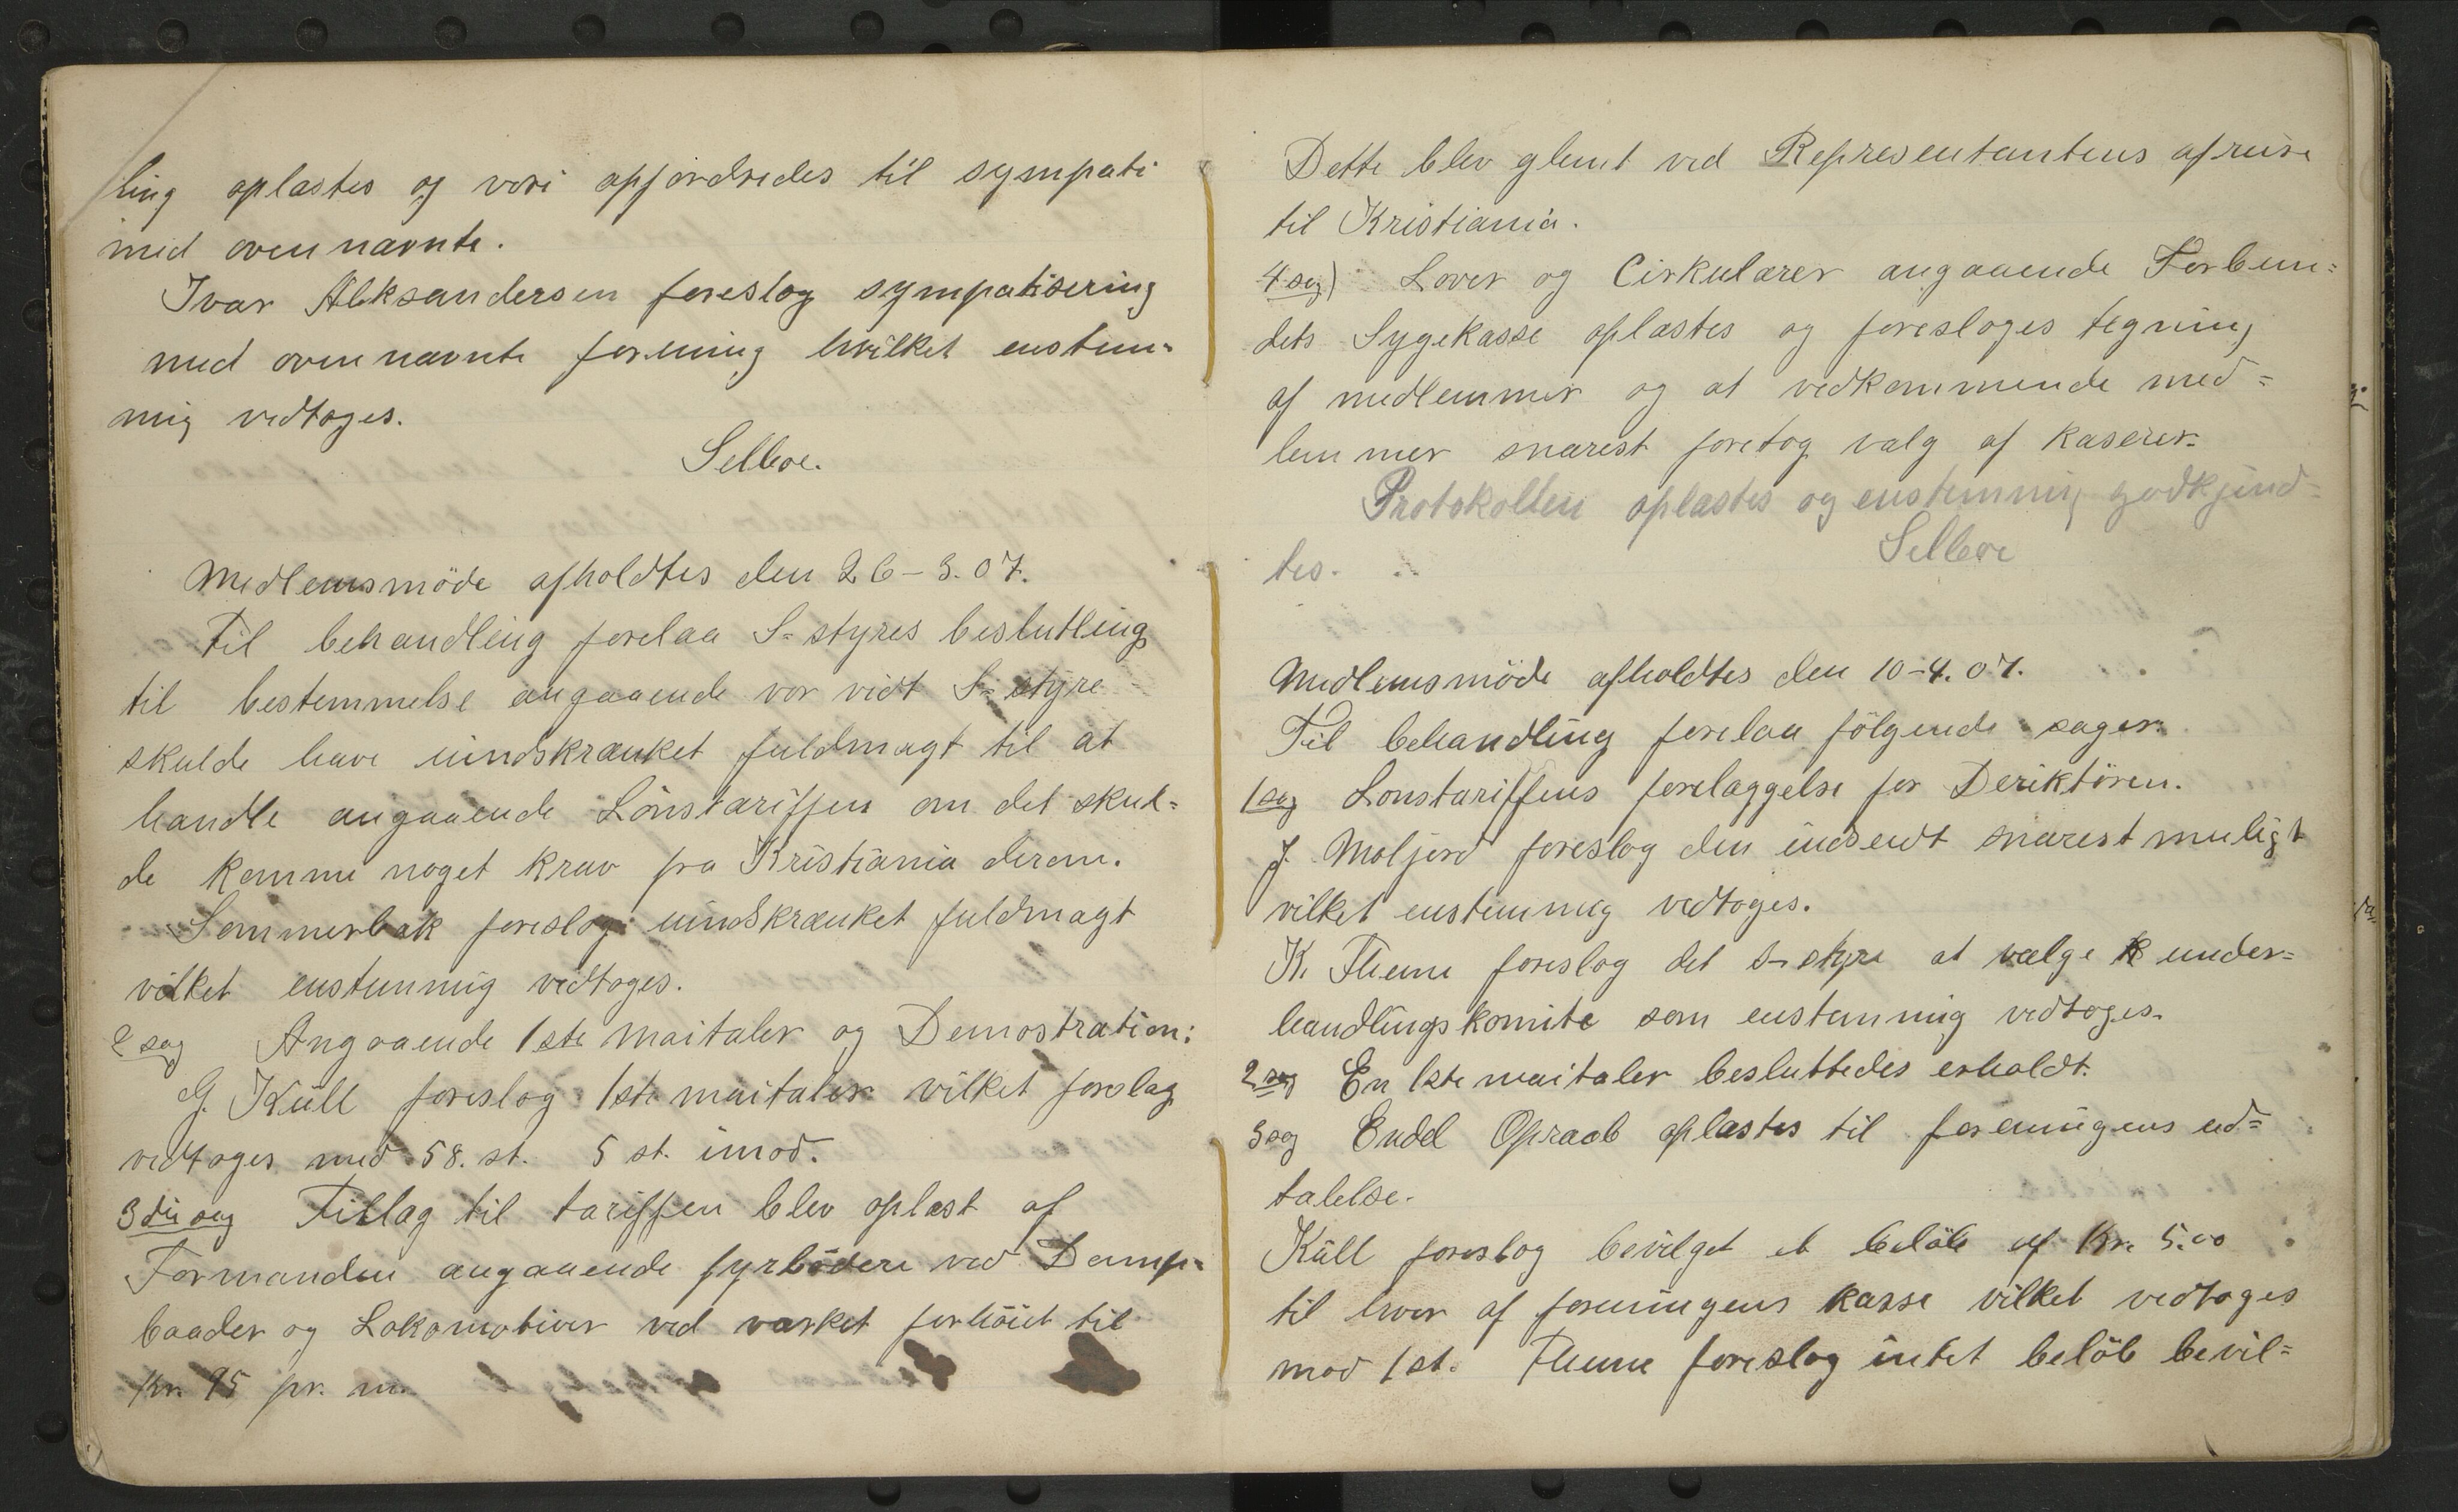 ling oplæstes og vori opfordredes til sympati
med ovennævnte.
Ivar Aleksandersen foreslog sympatisering
med ovennævnte forening hvilket enstem=
mig vedtoges.
Selboe.
Medlemsmöde afholdtes den 26-3.07.
Til behandling forelaa S-styres beslutting
til bestemmelse angaaende vor vidt S-styre
skulde have uindskrænket fuldmagt til at
handle angaaende Lönstariffen om det skul=
de komme noget krav fra Kristiania derom.
Sommerbak foreslog uindskrænket fuldmagt
vilket enstemmig vedtoges.
2 sag Angaaende 1ste maitaler og Demostration:
G. Küll foreslog 1ste maitaler vilket forslag
vedtoges med 58. st. 5 st. imod.
3die sag Tillag til tariffen blev oplæst af
Formanden angaaende fyrbödere ved Damp=
baader og Lokomotiver ved værket forhöiet til
Kr. 95 pr. m.
Dette blev glemt ved Representantens afreise
til Kristiania.
4 sag) Lover og Cirkulærer angaaende Forbun=
dets Sygekasse oplæstes og foresloges tegning
af medlemmer og at vedkommende med=
lemmer snarest foretog valg af kaserer.
Protokollen oplæstes og enstemmig godkjend=
tes. Selboe
Medlemsmöde afholdtes den 10-4.07.
Til behandling forelaa fölgende sager.
1 sag Lonstariffens forelæggelse for Deriktören.
J. Moljord foreslog den indsendt snarest muligt
vilket enstemmig vedtoges.
K. Fleme foreslog det S-styre at vælge under=
handlingskomite som enstemmig vedtoges.
2 sag En 1ste maitaler besluttedes erholdt.
3 sag Endel Opraab oplæstes til foreningens ud=
talelse.
Küll foreslog bevilget et belöb af Kr. 5.00
til hver af foreningens kasse vilket vedtoges
mod 1 st. Fleme foreslog intet belöb bevil=